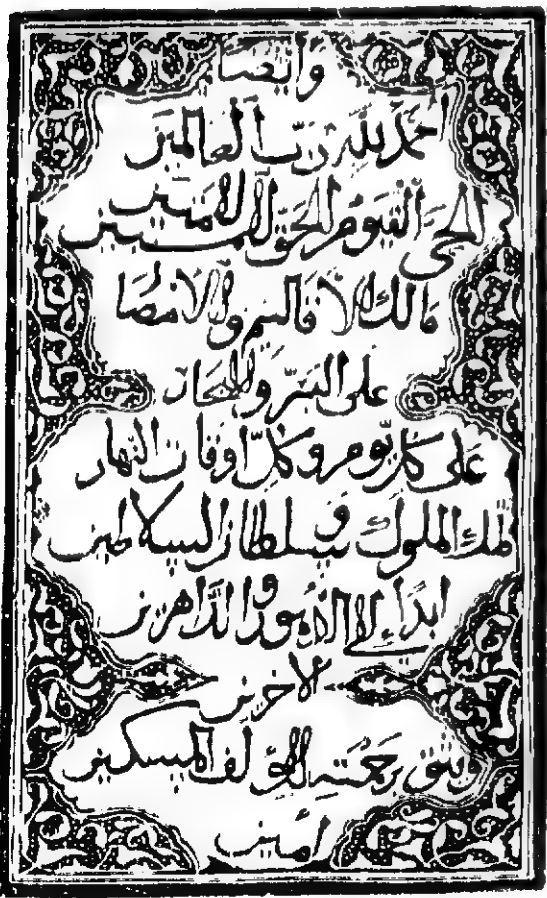 وايضا
احمد لله رب العالمين
الحي القيوم الحق الامين
مالك الاقاليم والامصار
على البر والبحار
على كل يوم وكل اوقات النهار
ملك الملوك وسلطان السلاطين
ابداء الى الدهور والداهرين
الاخرين
ويثق برحمته المولف المسكين
امين